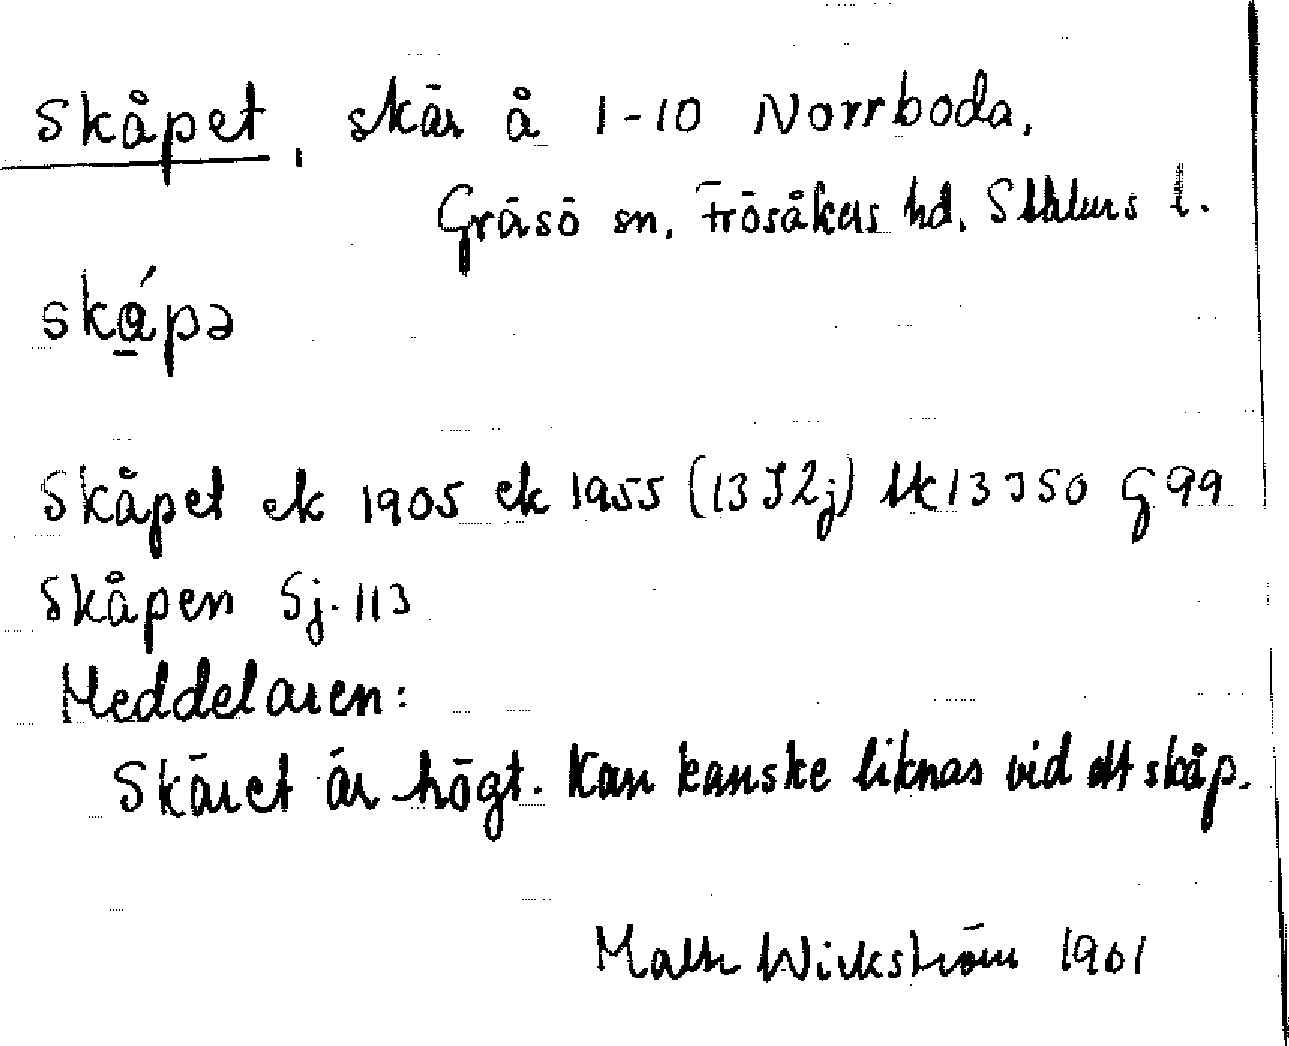 Skåpet, skär å 1-10 Norrboda,
Gräsö sn, Frösåkers hd, Sthlms l.
skápə
Skåpet ek 1905 ek 1955 (13 I 2j) Uk 13 I SO G 99
Skåpen Sj. 113
Meddelaren:
Skäret är högt. Kan kanske liknas vid ett skåp.
Wickström 1961